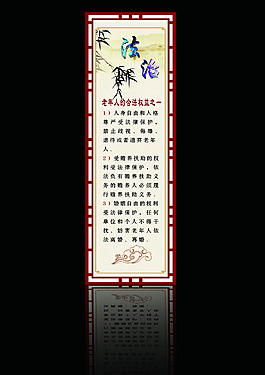 法治
老年人的合法权益之一
1）人身自由和人格
尊严受法律保护，
禁止歧视、侮辱、
虐待或者遗弃老年
人．
2）受赡养扶助的权
利受法律保护，依
法负有赡养扶助义
务的赡养人必须履
行赡养扶助义务．
3）婚姻自由的权利
受法律保护，任何
单位和个人不得干
扰、妨害老年人依
法离婚、再婚．